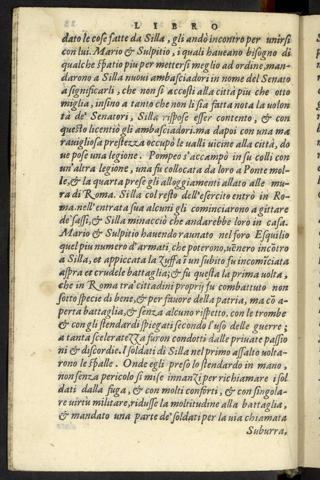 LIBRO
dato le cose fatte da Silla, gli andò incontro per unirsi
con lui. Mario & Sulpitio, i quali haveano bisogno di
qualche spatio piu per mettersi meglio ad ordine, man-
darono a Silla nuovi ambasciadori in nome del Senato
a significarli, che non si accosti alla città piu che otto
miglia, insino a tanto che non li sia fatta nota la volon
tà de' Senatori, Silla rispose esser contento, & con
questo licentiò gli ambasciadori. ma dapoi con una ma
ravigliosa prestezza occupò le ualli uicine alla città, do
ue pose una legione. Pompeo s'accampò in su colli con
un'altra legione, una fu collocata da loro a Ponte mol-
le, & la quarta prese gli alloggiamenti allato alle mu-
ra di Roma. Silla col resto dell'esercito entrò in Ro-
ma. nell'entrata sua alcuni gli cominciarono a gittare
de' sassi, & Silla minacciò che andarebbe loro in casa.
Mario & Sulpitio havendo raunato nel foro Esquilio
quel piu numero d'armati, che poterono, uēnero incōtro
a Silla, et appiccata la zuffa ī un subito fu incomīciata
aspra et crudele battaglia; & fu questa la prima volta,
che in Roma tra' cittadini proprij fu combattuto non
sotto specie di bene, & per fauore della patria, ma cō a-
perta battaglia, & senza alcuno rispetto. con le trombe
& con gli stendardi spiegati secondo l'uso delle guerre;
a tanta sceleratezza furon condotti dalle private passio
ni & discordie. I soldati di Silla nel primo assalto volta-
rono le spalle. Onde egli preso lo stendardo in mano,
non senza pericolo si mise innanzi per richiamare i sol
dati dalla fuga, & con molti conforti, & con singola-
re virtù militare, ridusse la moltitudine alla battaglia,
& mandato una parte de' soldati per la via chiamata
Suburra,